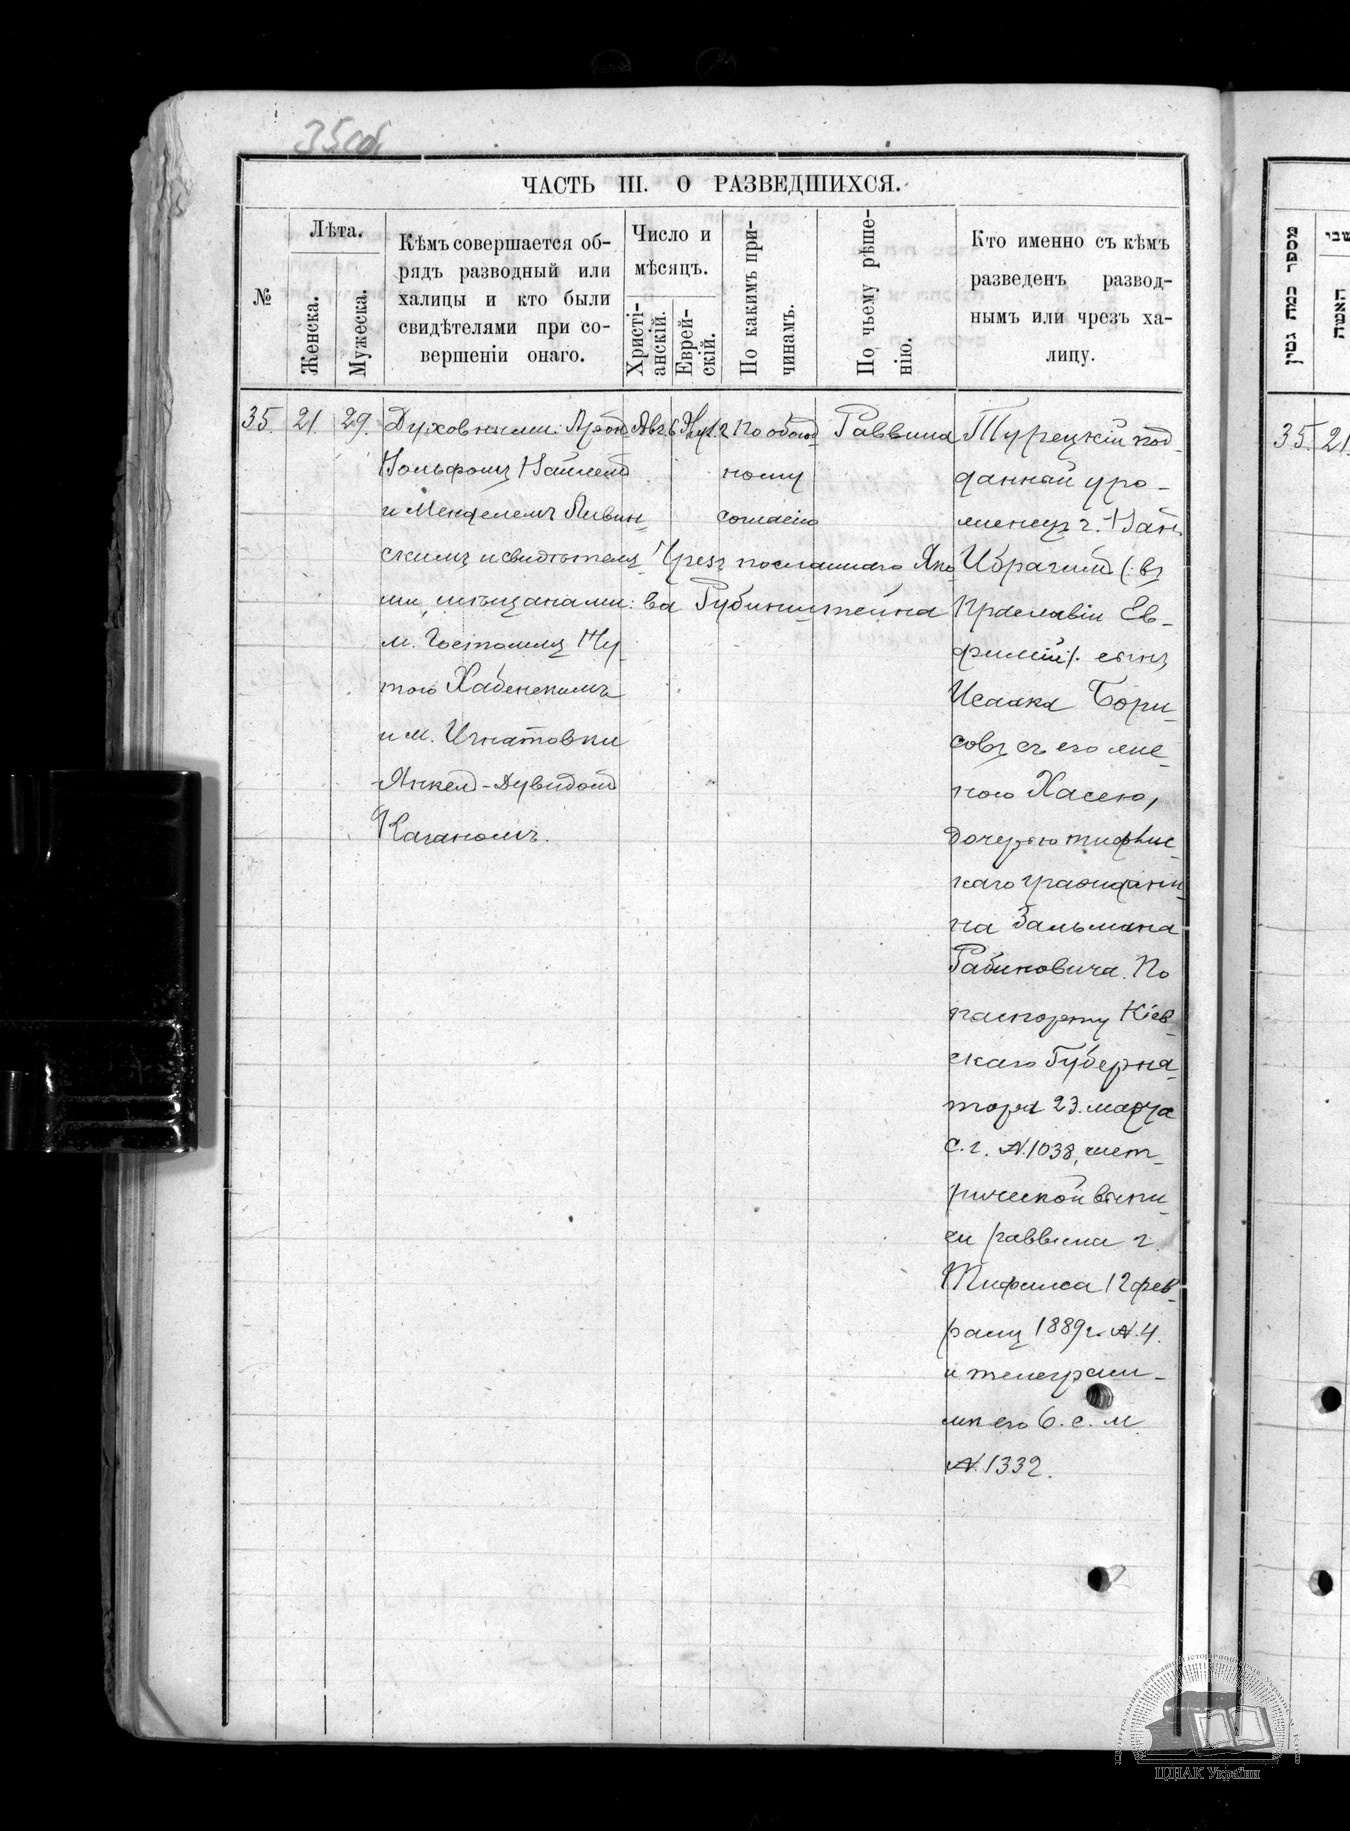 35 об.
ЧАСТЬ III. О РАЗВЕДШИХСЯ.
№
Лѣта.
Женска.
Мужеска.
Кѣмъ совершается об-
рядъ разводный или
халицы и кто были
свидѣтелями при со-
вершеніи онаго.
Число и
мѣсяцъ.
Христі-
анскій.
Еврей-
скій.
По какимъ при-
чинамъ.
По чьему рѣше-
нію.
Кто именно съ кѣмъ
разведенъ развод-
нымъ или чрезъ ха-
лицу.
35. 21. 29.
Духовными:
Вольфомъ
и Менделемъ Ливин-
скимъ и свидѣтеля-
ми, мѣщанами:
м. Гостомля Ну-
тою Хабенскимъ
и м. Игнатовки
Янкел-Дувидом
Каганомъ.
Авг. 6
По обоюд
ному
согласію
Раввина
Чрезъ посланнаго Яко
ва Рубинштейна
Турецкій под-
данный уро-
женецъ г.
Ибрагим (въ
Православіи Ев-
фимій). сынъ
Исаака Бори-
совъ съ его же-
ною Хасею,
дочерью тифлис-
каго граждани-
на Зальмана
Рабиновича. По
паспорту Кіев-
скаго Губерна-
тора 23 марта
с. г. №. 1038, мет-
рической выпи-
си раввина г.
Тифлиса 12 фев-
раля 1889 г. №. 4.
и телеграм-
мѣ его 6. с. м.
№. 1332.
מספר כמה גטין
האשה
35. 21.
ЦДІАК України